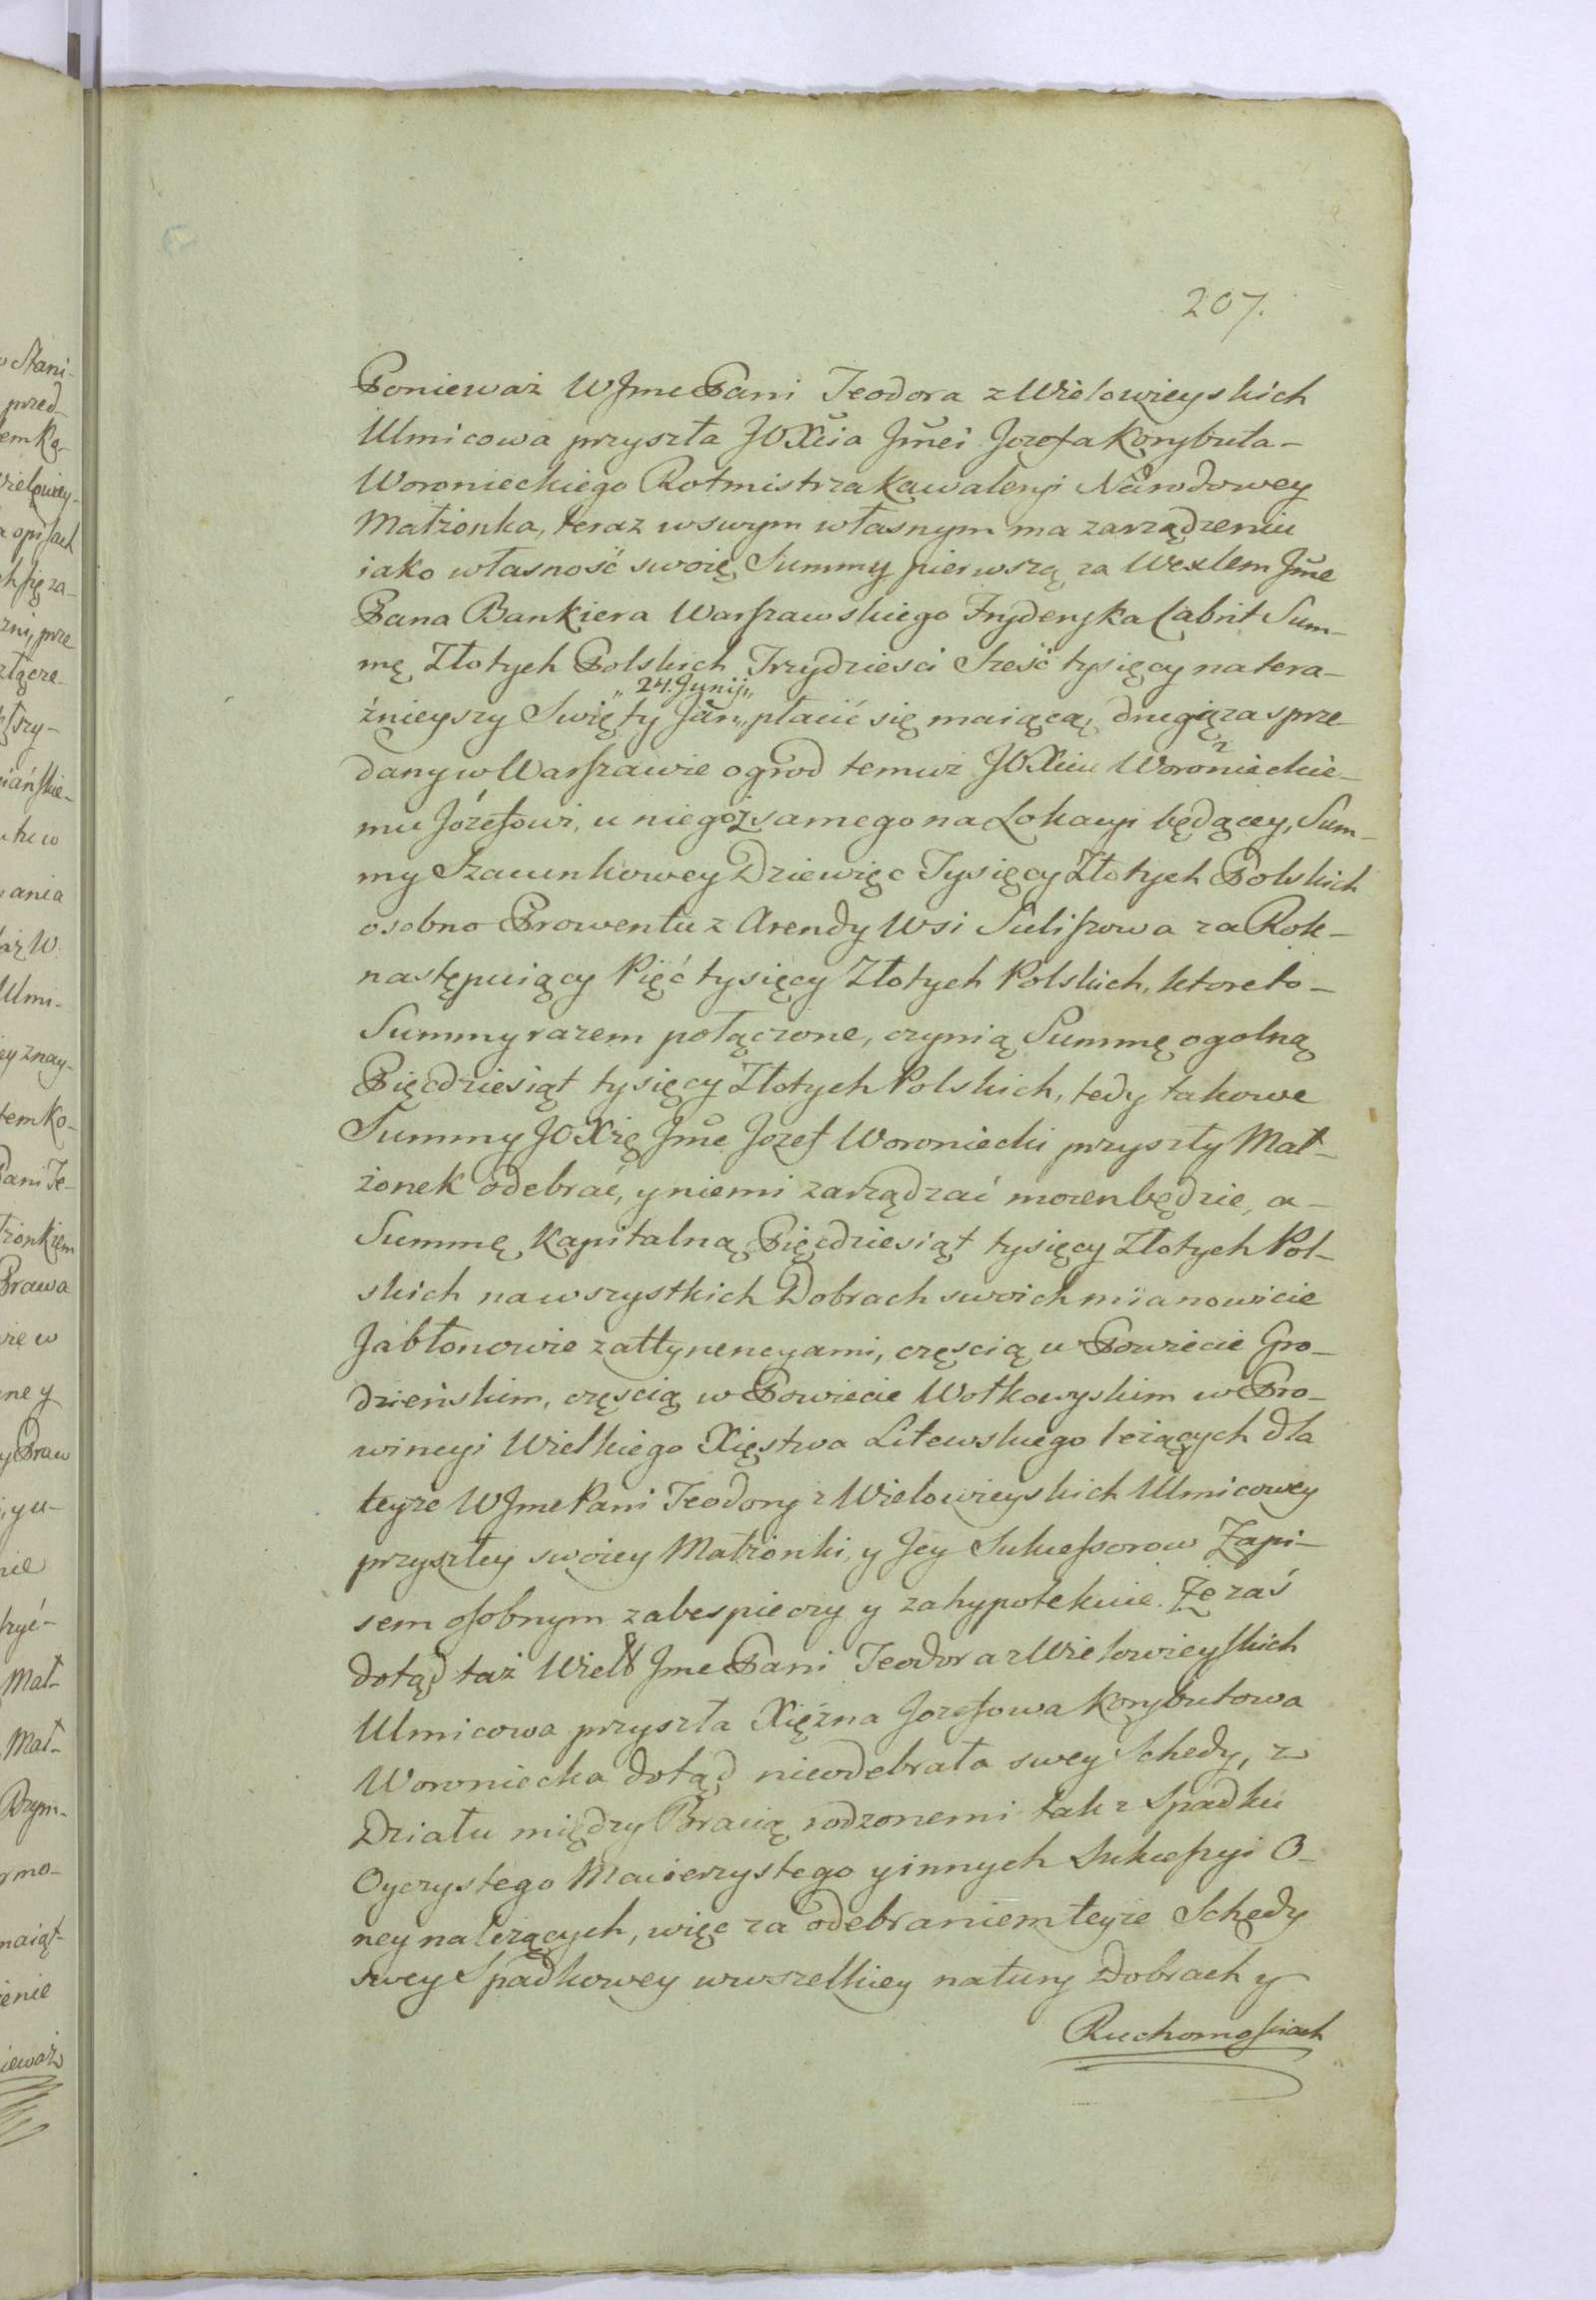 207.
Ponieważ WJme Pani Teodora z Wielowieyskich
Ulmicowa przyszła JOXcia Jmci Jozefa Korybuta-
Woronieckiego Rotmistrza Kawaleryi Narodowey
Małżonka, teraz w swym własnym ma zarządzeniu
iako własność swoię Summy pierwszą za Wexlem Jme
Pana Bankiera Warszawskiego Fryderyka Cabrit Sum-
mę Złotych Polskich Trzydziesci Sześć tysięcy na tera-
„24. Junij„
źnieyszy Swięty Jan„ płacić się maiącą, drugą za sprze-
dany w Warszawie ogrod temuż JOXciu Woronieckie-
mu Józefowi, u niegoż samego na Lokacyi będącey, Sum-
my Szacunkowey Dziewięc Tysięcy Złotych Polskich
osobno Prowentu z Arendy Wsi Suliszowa za Rok-
następuiący Pięć tysięcy Złotych Polskich, ktoreto-
Summy razem połączone, czynią Summę ogolną
Pięcdziesiąt tysięcy Złotych Polskich, tedy takowe
Summy JOXżę Jme Jozef Woroniecki przyszły Mał-
żonek odebrać, y niemi zarządzać mocen będzie, a-
Summę Kapitalną Pięcdziesiąt tysięcy Złotych Pol-
skich na wszystkich Dobrach swoich mianowicie
Jabłonowie z attynencyami, częscią w Powiecie Gro-
dzieńskim, częscią w Powiecie Wołkowyskim w Pro-
wincyi Wielkiego Xięstwa Litewskiego leżących dla
teyże WJme Pani Teodory z Wielowieyskich Ulmicowey
przyszłey swoiey Małżonki, y Jey Sukcessorow Zapi-
sem osobnym zabespieczy y zahypotekuie. Że zaś
dotąd taż Wiel Jme Pani Teodora z Wielowieyskich
Ulmicowa przyszła Xiężna Jozefowa Korybutowa
Woroniecka dotąd nieodebrała swey Schedy, z
Działu między Bracią rodzonemi tak z Spadku
Oyczystego Macierzystego y innych Sukcessyi O-
ney należących, więc za odebraniem teyże Schedy
swey Spadkowey w wszelkiey natury Dobrach y
Ruchomosciach